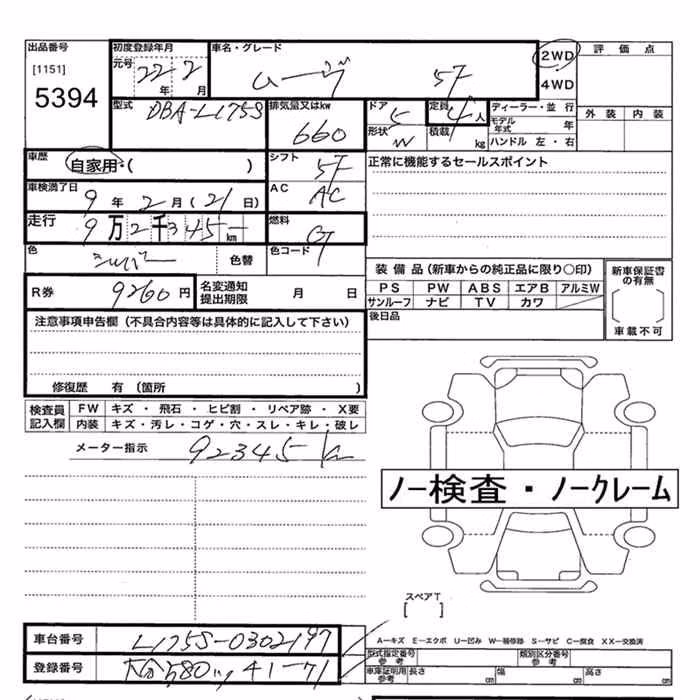 出品番号
[1151]
5394
初度登録年月
元号
22年 2月
車名・グレード
ムーヴ 5F
2WD
4WD
評価点
外装 内装
型式
DBA-L175S
排気量又はkw
660
ドア 5
形状 W
定員 4人
積載 kg
ディーラー・並行
モデル年式 年
ハンドル 左・右
車歴
自家用・( )
シフト 5F
正常に機能するセールスポイント
車検満了日
9年 2月 (21日)
AC AC
走行
9万2千345km
燃料
G
色 シルバー 色替
色コード
R券 9260円
名変通知提出期限 月 日
装備品(新車からの純正品に限り○印)
PS PW ABS エアB アルミW
サンルーフ ナビ TV カワ
新車保証書の有無
車載不可
後日品
注意事項申告欄(不具合内容等は具体的に記入して下さい)
修復歴 有(箇所 )
検査員記入欄
FW キズ・飛石・ヒビ割・リペア跡・X要
内装 キズ・汚レ・コゲ・穴・スレ・キレ・破レ
メーター指示 92345km
ノー検査・ノークレーム
スペアT
[ ]
A-キズ E-エクボ U-凹み W-補修跡 S-サビ C-腐食 XX-交換済
車台番号 L175S-0302197
登録番号 大分580 41-71
型式指定番号 参考
類別区分番号 参考
車庫証明用 参考
長さ cm 幅 cm 高さ cm